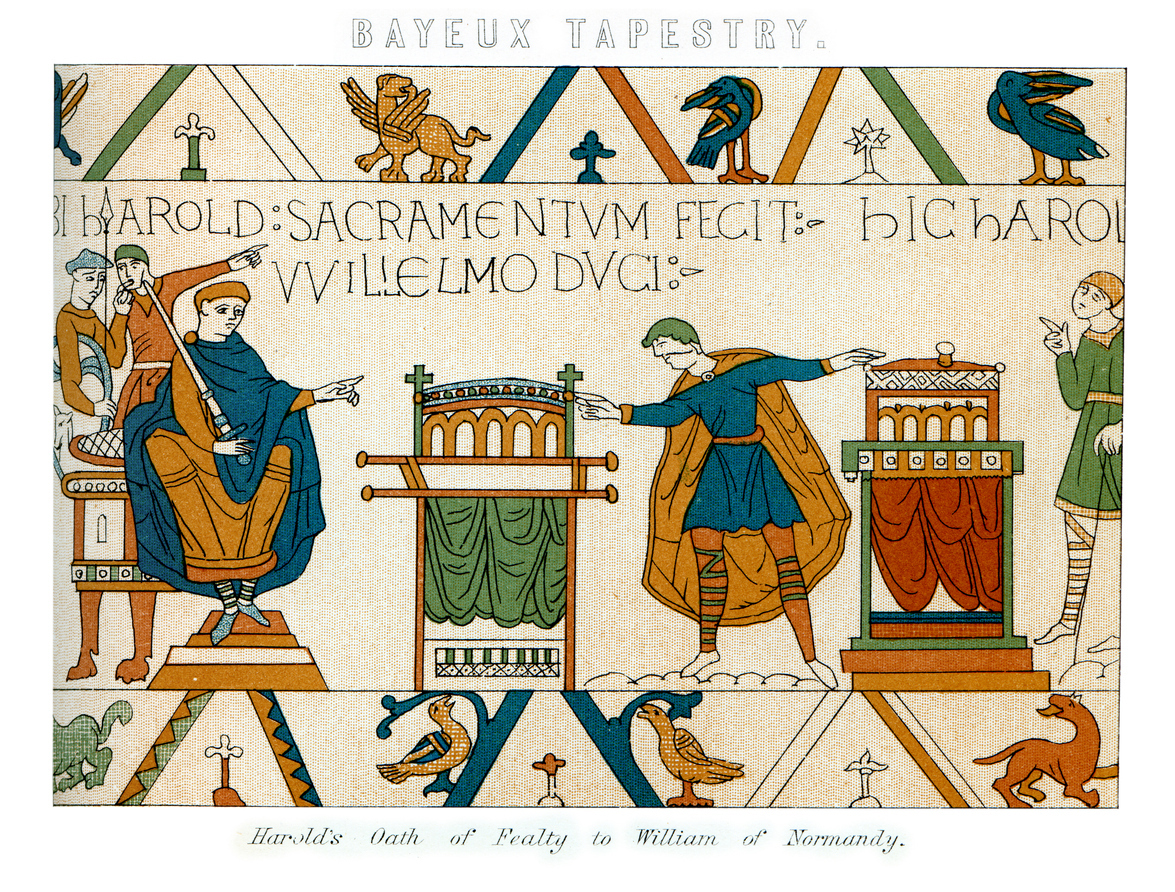 BAYEUX TAPESTRY.
BI hAROLD:SACRAMENTVM FECIT:- hIC hAROL
VVILLELMO DVCI:-
Harold's Oath of Fealty to William of Normandy.